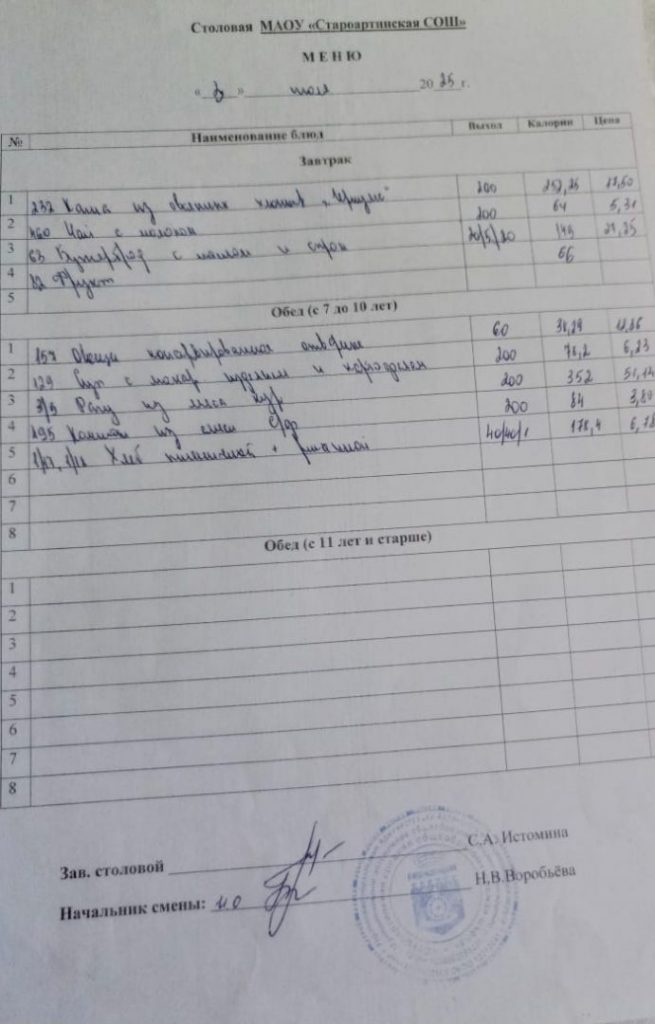 Столовая МАОУ «Староартинская СОШ»
МЕНЮ
« » июля 2025 г.
№ Наименование блюд Выход Калории Цена
Завтрак
1 232 Каша из овсяных хлопьев „Геркулес" 200 252,25
2 460 Чай с молоком 200 64 5,31
3 63 Бутерброд с маслом и сыром 149 21,25
4 82 Фрукт 66
5
Обед (с 7 до 10 лет)
1 157 Овощи консервированные отварные 60
2 129 Суп с макар изделиями и картофелем 200 78,2 6,23
3 Рагу из мяса кур 200 352
4 495 Компот из смеси с/фр 200 84 3,80
5 Хлеб пшеничный + ржаной 40/40/1 178,4
6
7
8
Обед (с 11 лет и старше)
1
2
3
4
5
6
7
8
Зав. столовой С.А. Истомина
Начальник смены: и.о Н.В.Воробьёва